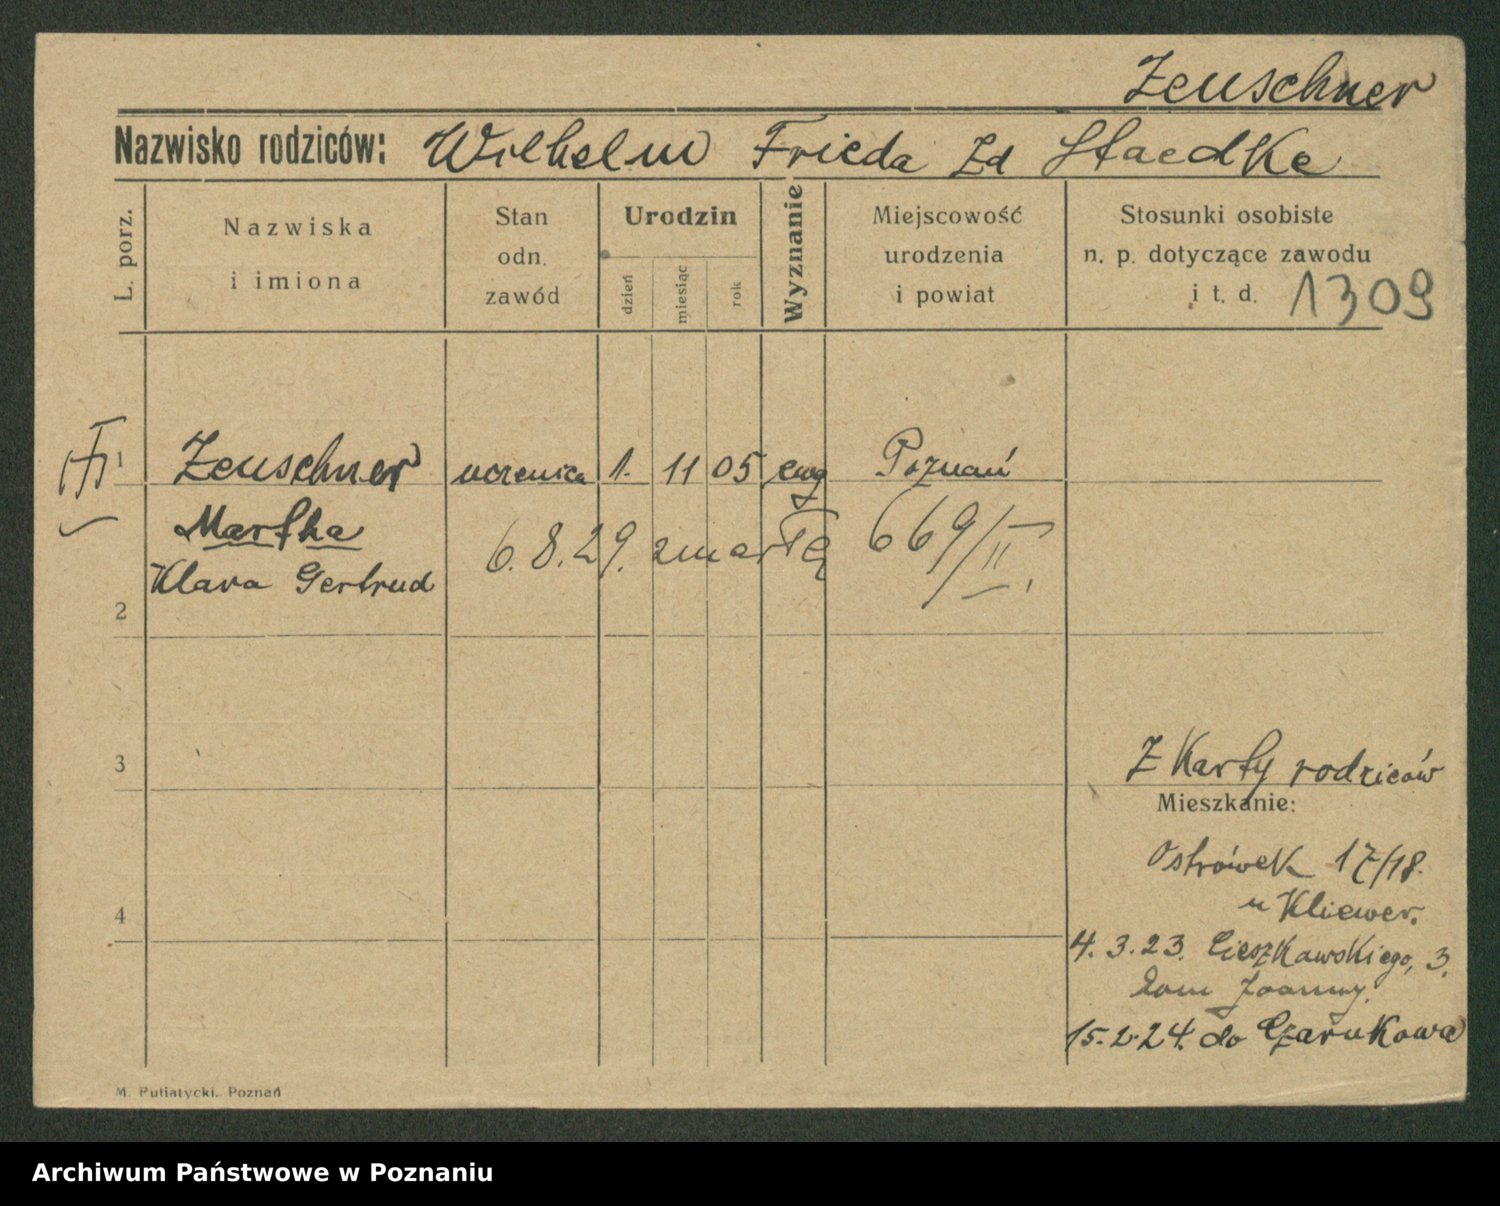 Zeuschner
Nazwisko rodziców: Wilhelm Frieda Zd Staedke
L. porz.
Nazwiska
i imiona
Stan
odn.
zawód
Urodzin
dzień
miesiąc
rok
Wyznanie
Miejscowość
urodzenia
i powiat
Stosunki osobiste
n. p. dotyczące zawodu
i t. d. 1309
1 Zeuschner uczenica 1. 11 05 ewg Poznań
Martha
6. 8. 29. zmarła 669/II.
Klara Gertrud
2
3
Z Karty rodziców
Mieszkanie:
Ostrówek 17/18.
u Kliewer.
4
4. 3. 23. Cieszkowskiego, 3.
dom Joanny.
15. 2. 24. do Czarnkowa
M. Putiatycki.. Poznań
Archiwum Państwowe w Poznaniu